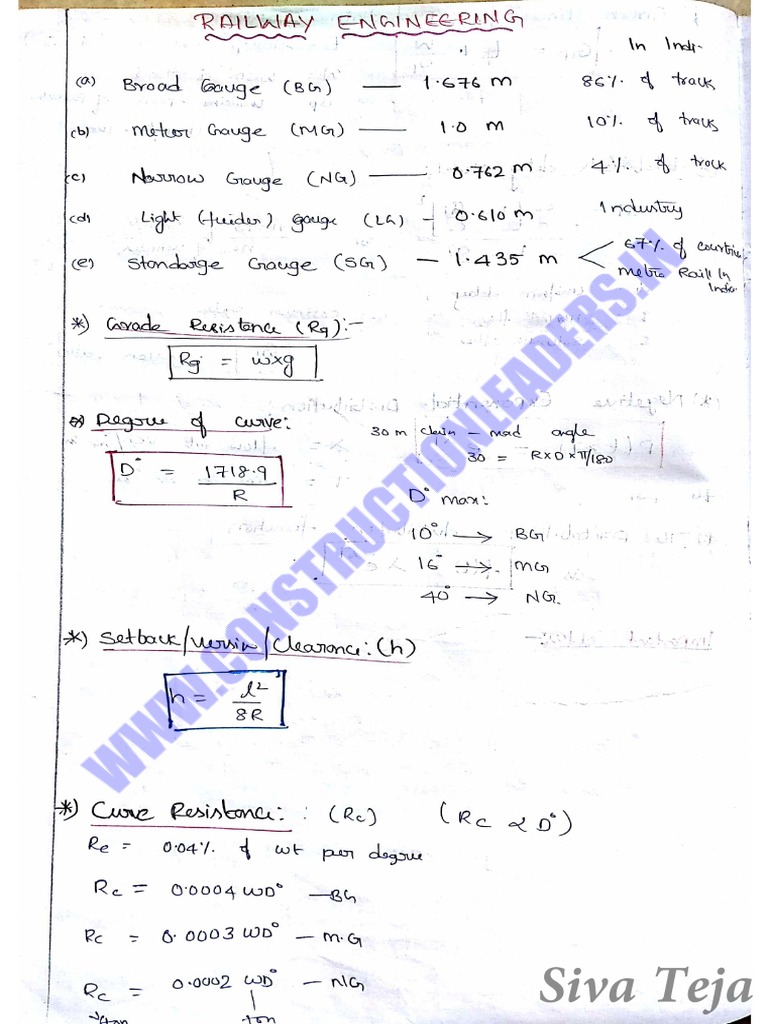 RAILWAY ENGINEERING
In Indi-
(a) Broad Gauge (BG) — 1.676 m 86% of track
(b) Meter Gauge (MG) — 1.0 m 10% of track
(c) Narrow Gauge (NG) — 0.762 m 4% of track
(d) Light (feider) gauge (LG) - 0.610 m Industry
(e) Standarge Gauge (SG) — 1.435 m < 67% of countrie,
metro Raill In
India
*) Grade Resistance (Rg):-
Rg = w×g
*) Degree of curve: 30 m chain — mad angle
D° = 1718.9 / R 30 = R×D×π/180
D° max:
10° → BG
16° → MG
40° → NG.
*) Setback/Versin/Clearance: (h)
h = l² / 8R
*) Curve Resistance: : (Rc) (Rc ∝ D°)
Re = 0.04% of wt per degree
Rc = 0.0004 WD° — BG
Rc = 0.0003 WD° — M.G
Rc = 0.0002 WD° — NG
ton
WWW.CONSTRUCTIONLEADERS.IN
Siva Teja